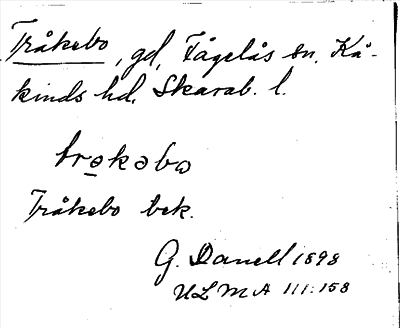 Tråkebo, gd, Fågelås sn, Kå-
kinds hd, Skarab. l.
trəkəbω
Tråkebo bek.
G. Danell 1898
ULMA 111:158